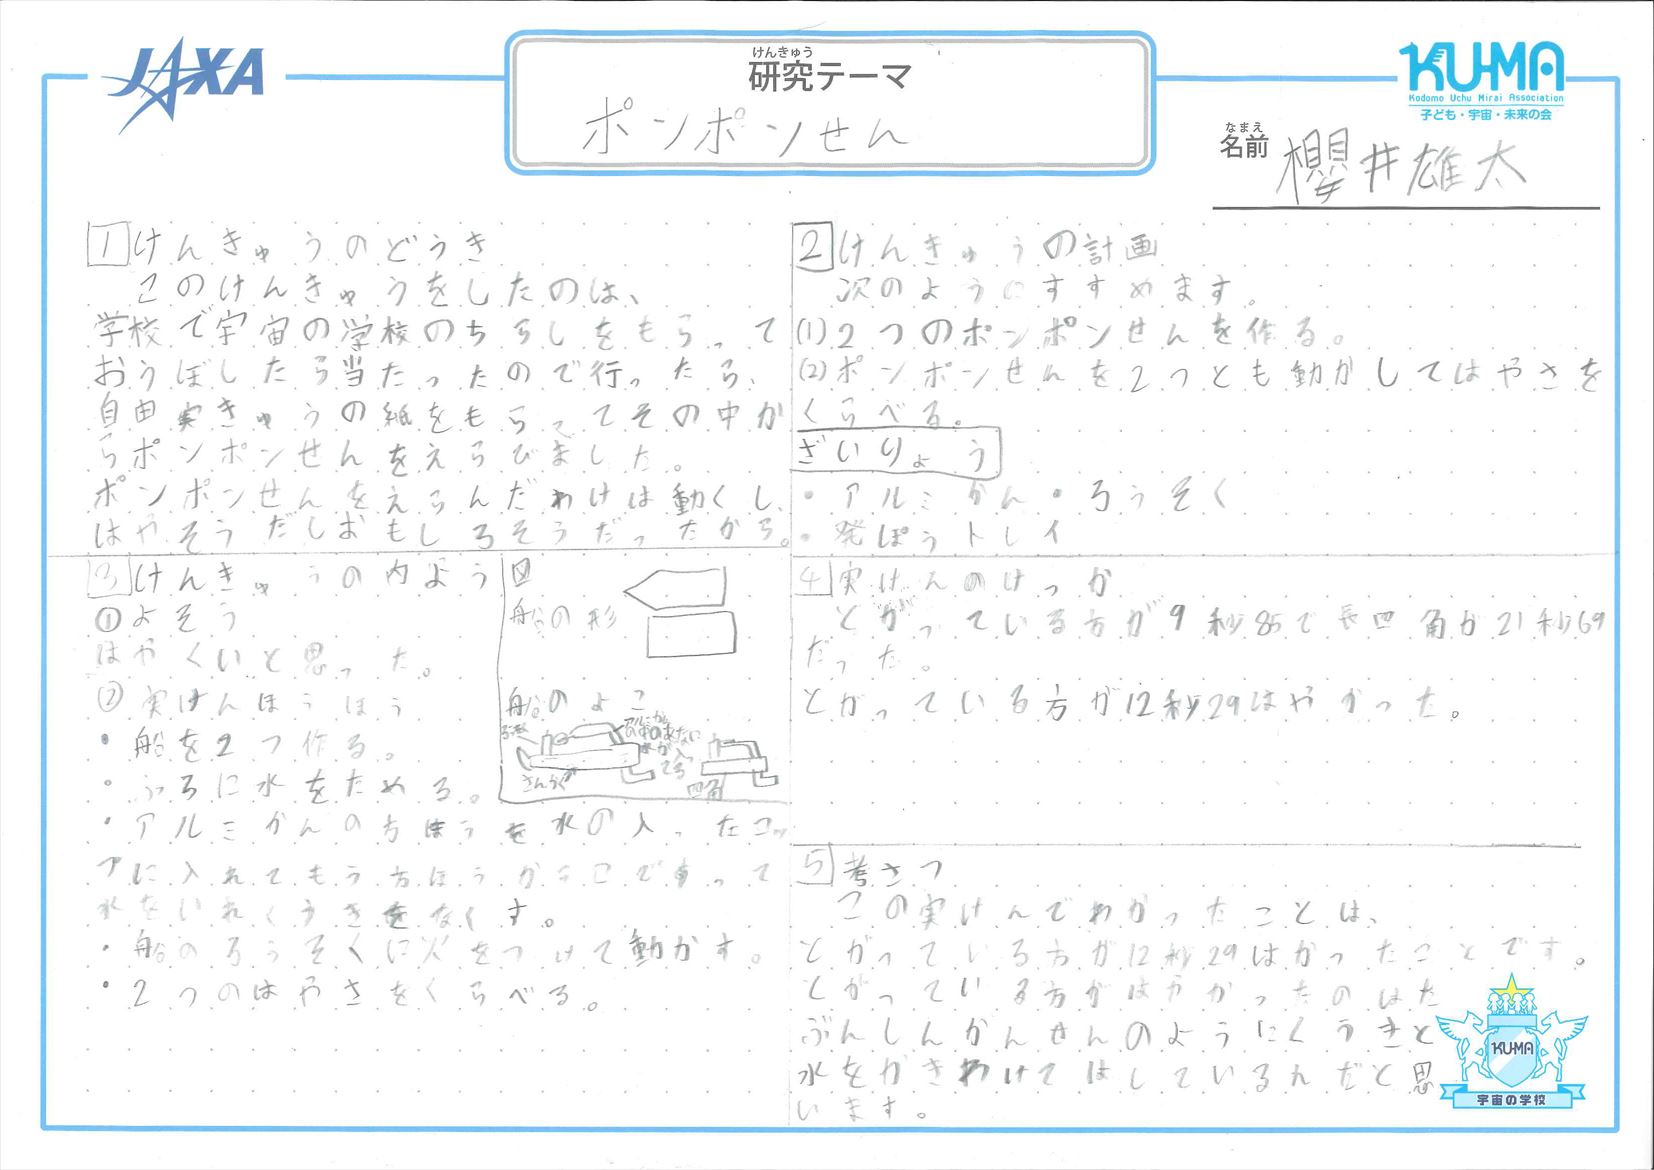 JAXA
けんきゅう
研究テーマ
ポンポンせん
KU-MA
Kodomo Uchu Mirai Association
子ども・宇宙・未来の会
なまえ
名前
櫻井雄太
1 けんきゅうのどうき
このけんきゅうをしたのは、
学校で宇宙の学校のちらしをもらって
おうぼしたら当たったので行ったら、
自由実きゅうの紙をもらってその中か
らポンポンせんをえらびました。
ポンポンせんをえらんだわけは動くし、
はやそうだしおもしろそうだったから。
2 けんきゅうの計画
次のようにすすめます。
(1)2つのポンポンせんを作る。
(2)ポンポンせんを2つとも動かしてはやさを
くらべる。
ざいりょう
・アルミかん・ろうそく
・発ぽうトレイ
3 けんきゅうの内よう
①よそう
はやくいと思った。
②実けんほうほう
・船を2つ作る。
・ふろに水をためる。
・アルミかんの方ほうを水の入ったコッ
プに入れてもう方ほうからこですって
水をいれくうきをなくす。
・船のろうそくに火をつけて動かす。
・2つのはやさをくらべる。
図
船の形
船のよこ
さんかく
四角
4 実けんのけっか
とがっている方が9秒85で長四角が21秒69
だった。
とがっている方が12秒29はやかった。
5 考さつ
この実けんでわかったことは、
とがっている方が12秒29はかったことです。
とがっている方がはやかったのはた
ぶんしんかんせんのようにくうきと
水をかきわけてはしているんだと思
います。
KU-MA
宇宙の学校